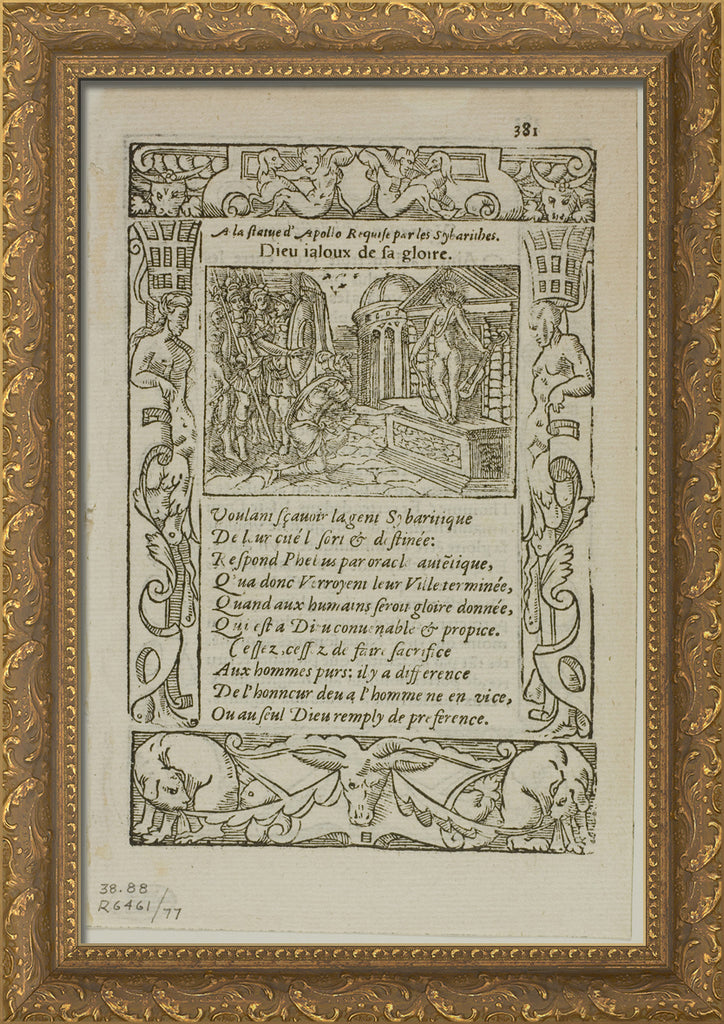 381
A la statue d'Apollo Requise par les Sybarithes.
Dieu ialoux de sa gloire.
Voulant sçavoir la gent Sybaritique
De leur cité l sort & destinée:
Respond Phebus par oracle autẽtique,
Qu'a donc Verroyent leur Ville terminée,
Quand aux humains seroit gloire donnée,
Qui est a Dieu conuenable & propice.
Cessez, cessez de faire sacrifice
Aux hommes purs: il y a difference
De l'honneur deu a l'homme ne en vice,
Ou au seul Dieu remply de preference.
38.88
R6461/77